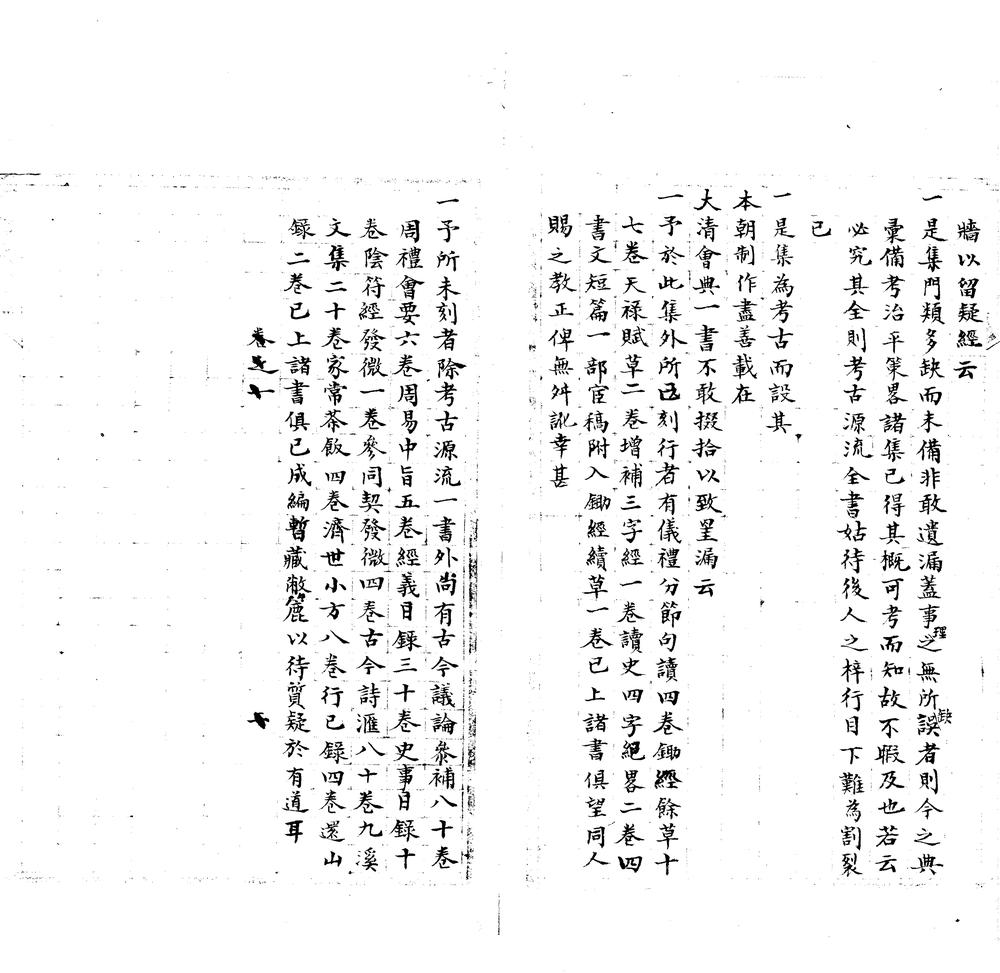 牆以留疑經云
一是集門類多缺而未備非敢遺漏蓋事之無所誤者則今之典
理
缺
彙備考治平策畧諸集已得其概可考而知故不暇及也若云
必究其全則考古源流全書姑待後人之梓行目下難為割裂
已
一是集為考古而設其
本朝制作盡善載在
大清會典一書不敢掇拾以致罣漏云
一予於此集外所已刻行者有儀禮分節句讀四卷鋤經餘草十
七卷天祿賦草二卷增補三字經一卷讀史四字絕畧二卷四
書文短篇一部宦稿附入鋤經續草一卷已上諸書俱望同人
賜之教正俾無舛訛幸甚
一予所未刻者除考古源流一書外尚有古今議論叅補八十卷
周禮會要六卷周易中旨五卷經義目錄三十卷史事目錄十
卷陰符經發微一卷參同契發微四卷古今詩滙八十卷九溪
文集二十卷家常茶飯四卷濟世小方八卷行已錄四卷還山
錄二卷已上諸書俱已成編暫藏敝簏以待質疑於有道耳
卷之十